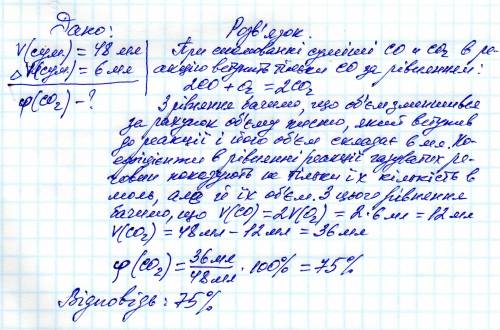 Дано:
V(сум) = 48 мл
△V(сум) = 6 мл
φ(CO₂) - ?
Розв'язок.
При спалюванні суміші CO и CO₂ в ре-
акцію вступить тільки CO за рівнянням:
2CO + O₂ = 2CO₂
З рівняння бачимо, що об'єм зменшився
за рахунок об'єму кисню, який вступив
до реакції і його об'єм складає 6 мл. Ко-
ефіцієнти в рівнянні реакції газуватих ре-
човин показують не тільки їх кількість в
моль, але й їх об'єм. З цього рівняння
бачимо, що V(CO) = 2V(O₂) = 2·6 мл = 12 мл
V(CO₂) = 48 мл - 12 мл = 36 мл
φ(CO₂) = 36 мл / 48 мл · 100% = 75%
Відповідь: 75%